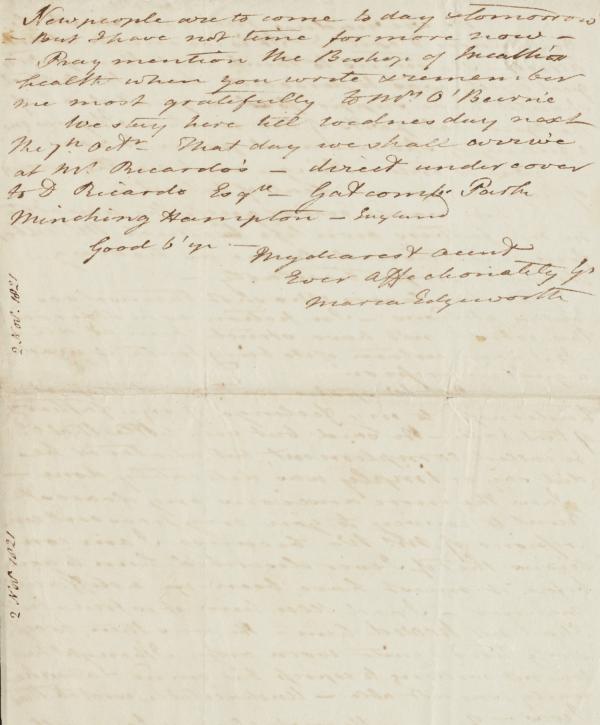 New people are to come to day & tomorrow
– But I have not time for more now –
– Pray mention the Bishop of Meath's
health when you write & remember
me most gratefully to Mrs O'Beirne
We stay here till wednesday next
the 7th Octr. That day we shall arrive
at Mr. Ricardo's – direct under cover
to D Ricardo Esqre – Gatcombe Park
Minching Hampton – England
Good b'ye –
My dearest aunt
Ever Affectionately Yrs
Maria Edgeworth
2 Nov. 1821
2 Nov. 1821